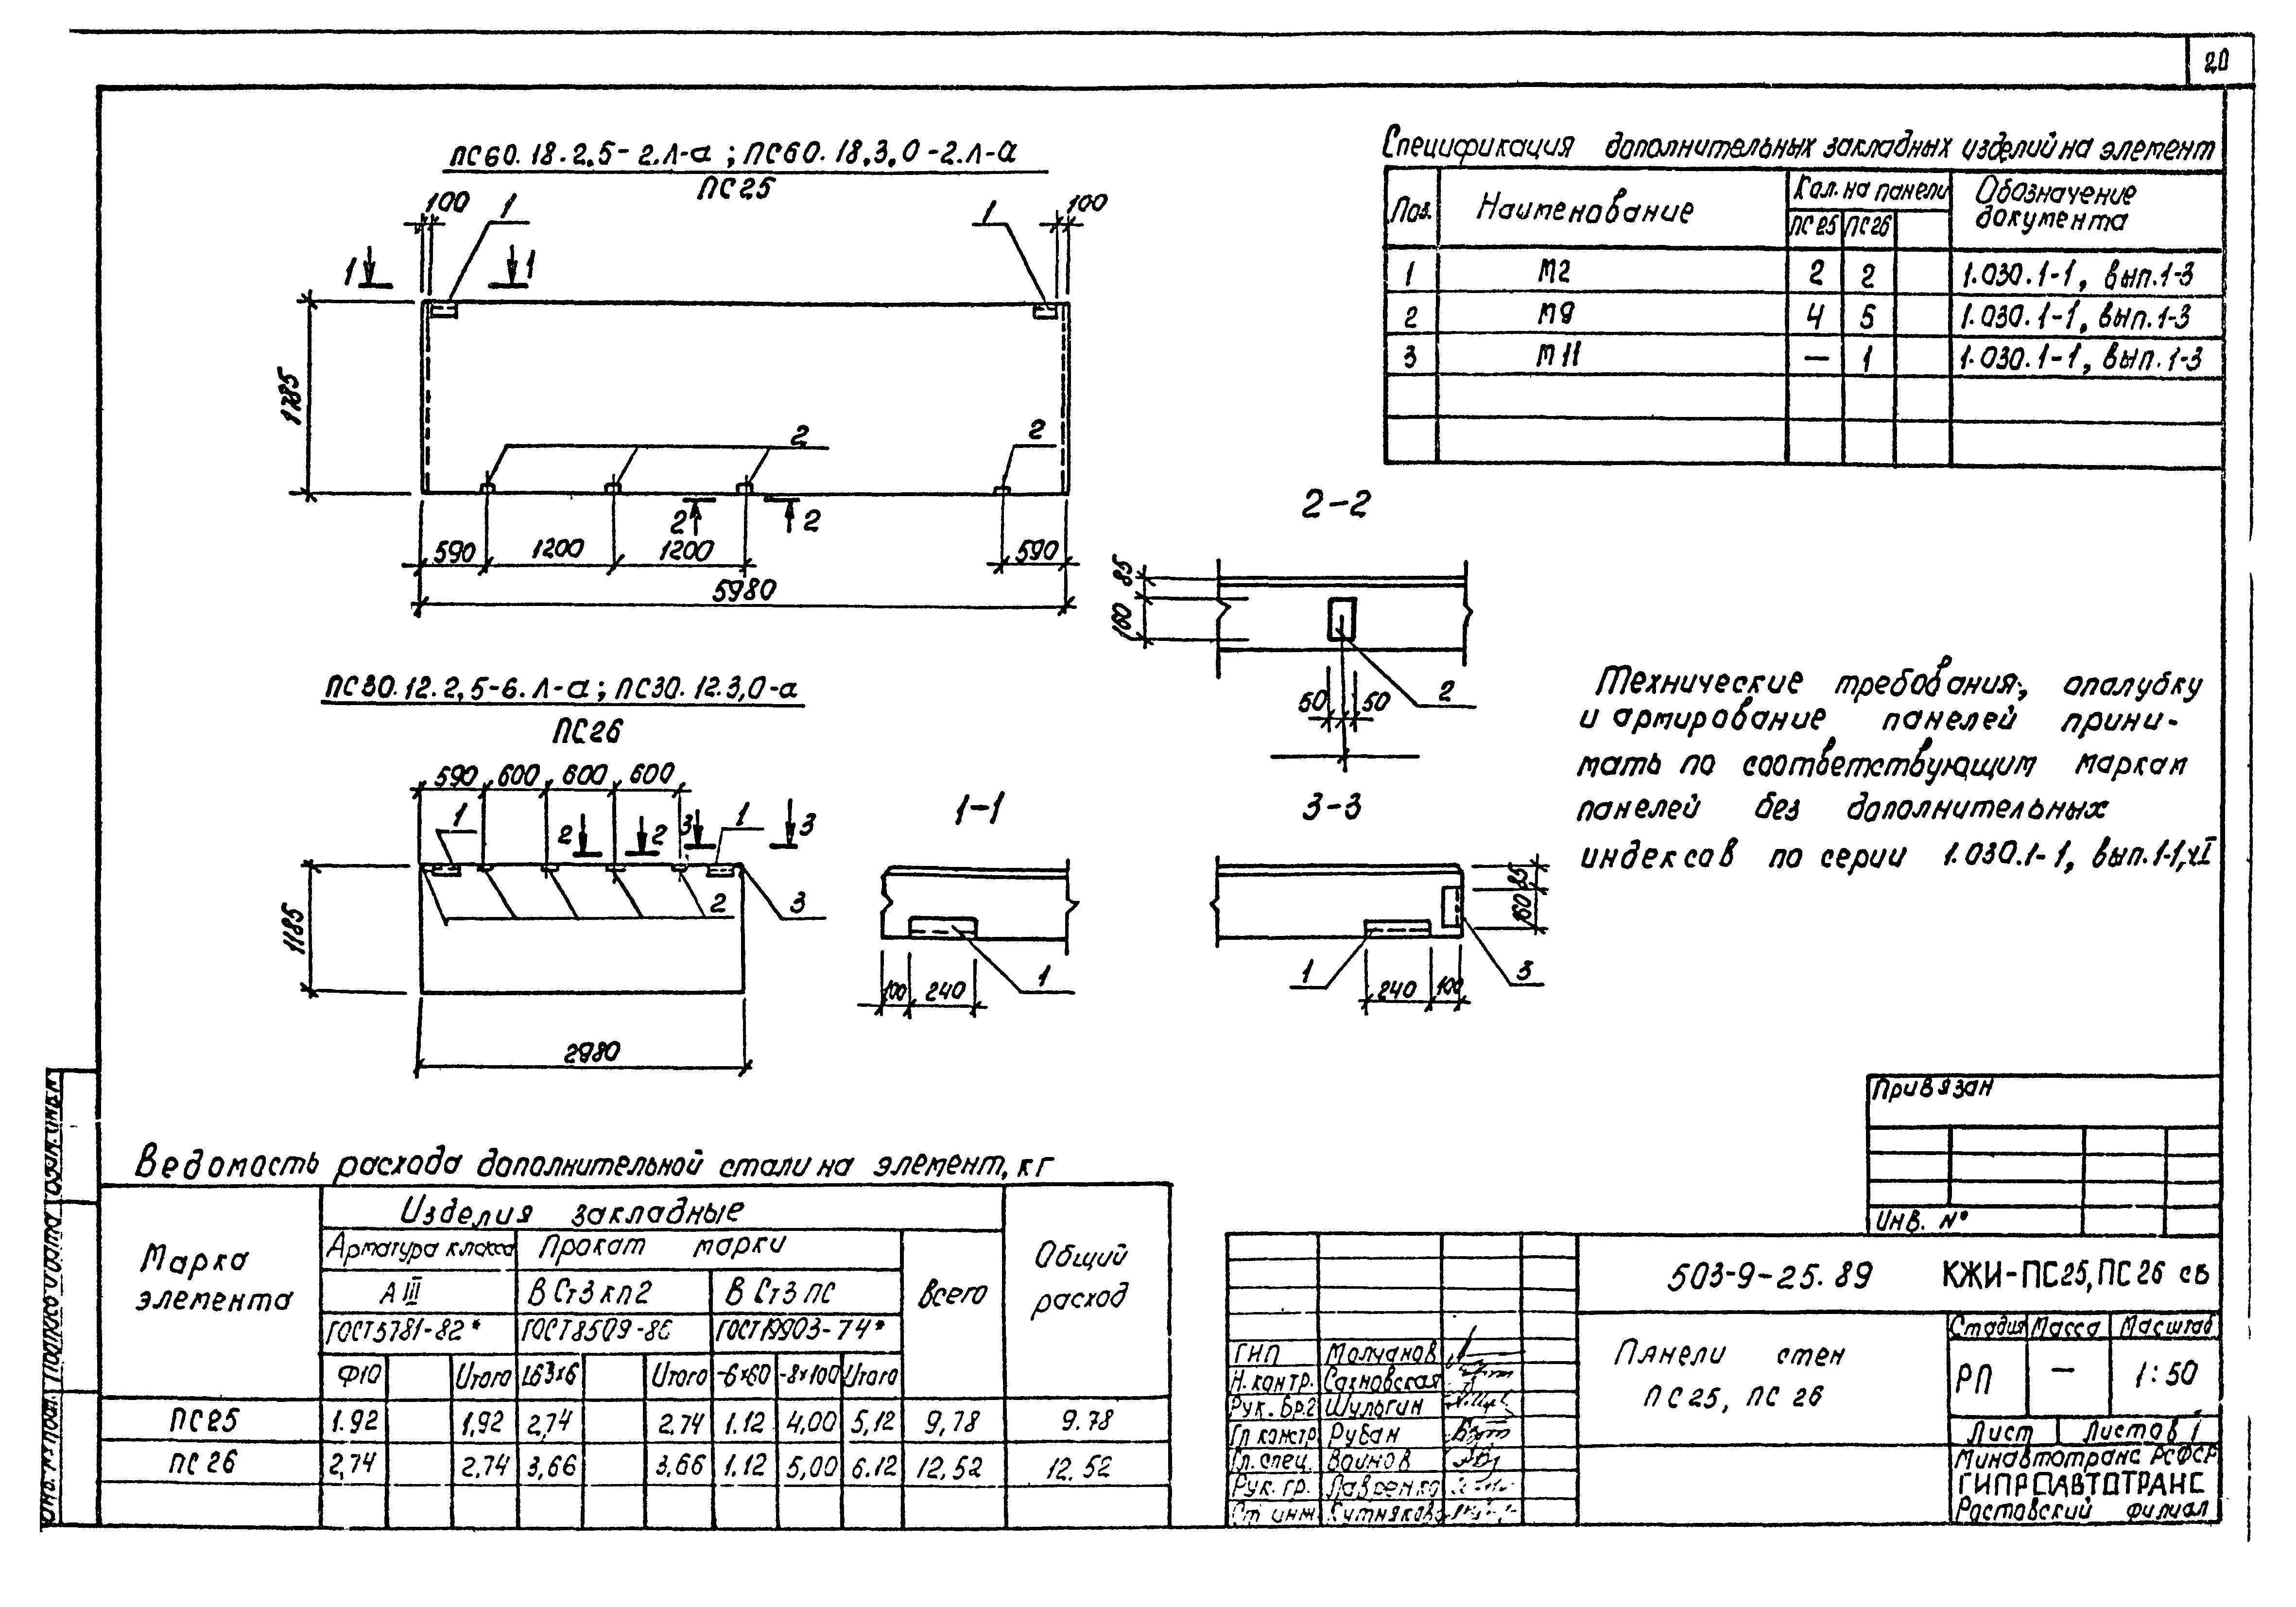 20
ПС60.18.2,5-2.Л-а ; ПС60.18.3,0-2.Л-а
ПС25
100
1
1
100
1
1
1785
2
2
2
2
590
1200
1200
590
5980
ПС30.12.2,5-6.Л-а ; ПС30.12.3,0-а
ПС26
590 600 600 600
1
2
2
3
1
3
2
3
1185
2980
1-1
1
100
240
2-2
85
160
50
50
2
3-3
85
160
1
240
100
3
Спецификация дополнительных закладных изделий на элемент
Поз. Наименование Кол. на панели Обозначение документа
ПС25 ПС26
1 М2 2 2 1.030.1-1, вып.1-3
2 М9 4 5 1.030.1-1, вып.1-3
3 М11 — 1 1.030.1-1, вып.1-3
Технические требования, опалубку
и армирование панелей прини-
мать по соответствующим маркам
панелей без дополнительных
индексов по серии 1.030.1-1, вып.1-1, ч.I
Ведомость расхода дополнительной стали на элемент, кг
Марка элемента
Изделия закладные
Общий расход
Арматура класса Прокат марки
Всего
А III В Ст3 кп2 В Ст3 пс
ГОСТ 5781-82* ГОСТ 8509-86 ГОСТ 19903-74*
Ф10 Итого L63x6 Итого -6x60 -8x100 Итого
ПС25 1.92 1,92 2,74 2.74 1.12 4,00 5,12 9,78 9.78
ПС26 2,74 2.74 3,66 3.66 1.12 5,00 6.12 12.52 12.52
Привязан
Инв. №
503-9-25.89 КЖИ-ПС25, ПС26 СБ
Панели стен
ПС25, ПС 26
Стадия Масса Масштаб
РП — 1:50
Лист Листов 1
Минавтотранс РСФСР
ГИПРОАВТОТРАНС
Ростовский филиал
ГИП Молчанов
Н. контр. Сахновская
Рук. бр.2 Шульгин
Гл констр Рубан
Гл. спец. Воинов
Рук. гр. Лавренко
Ст. инж